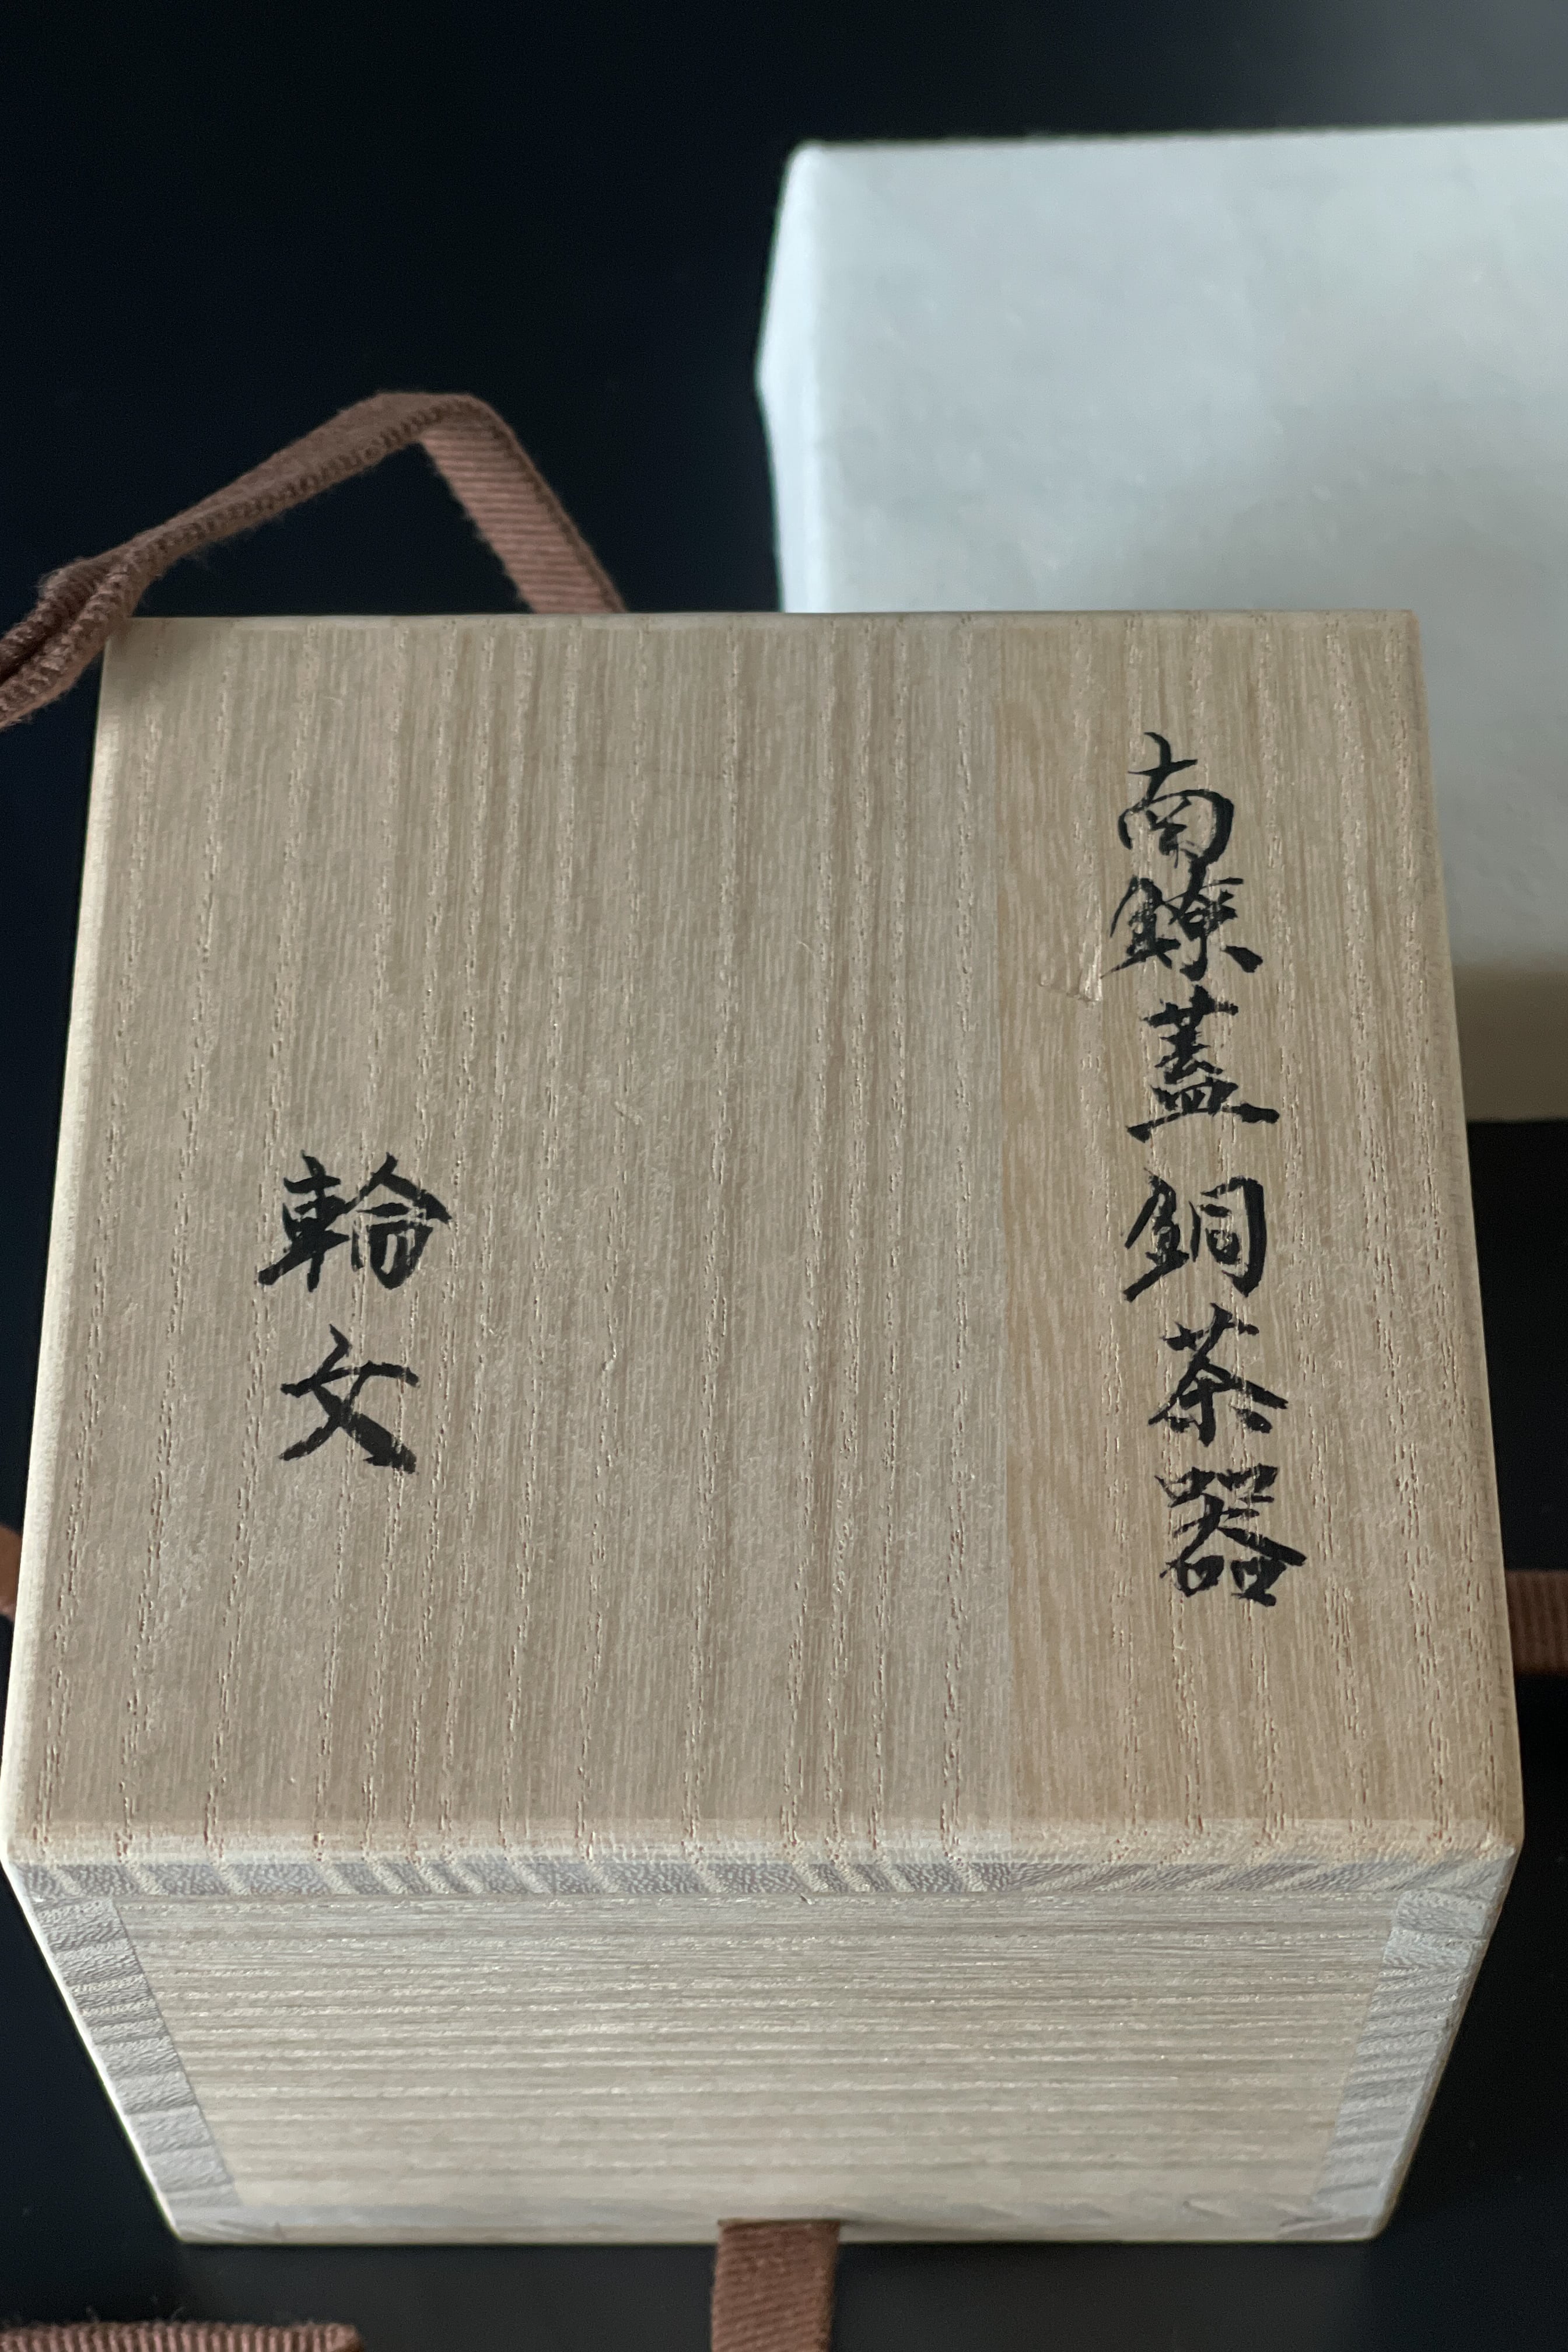 南鐐蓋銅茶器
輪文